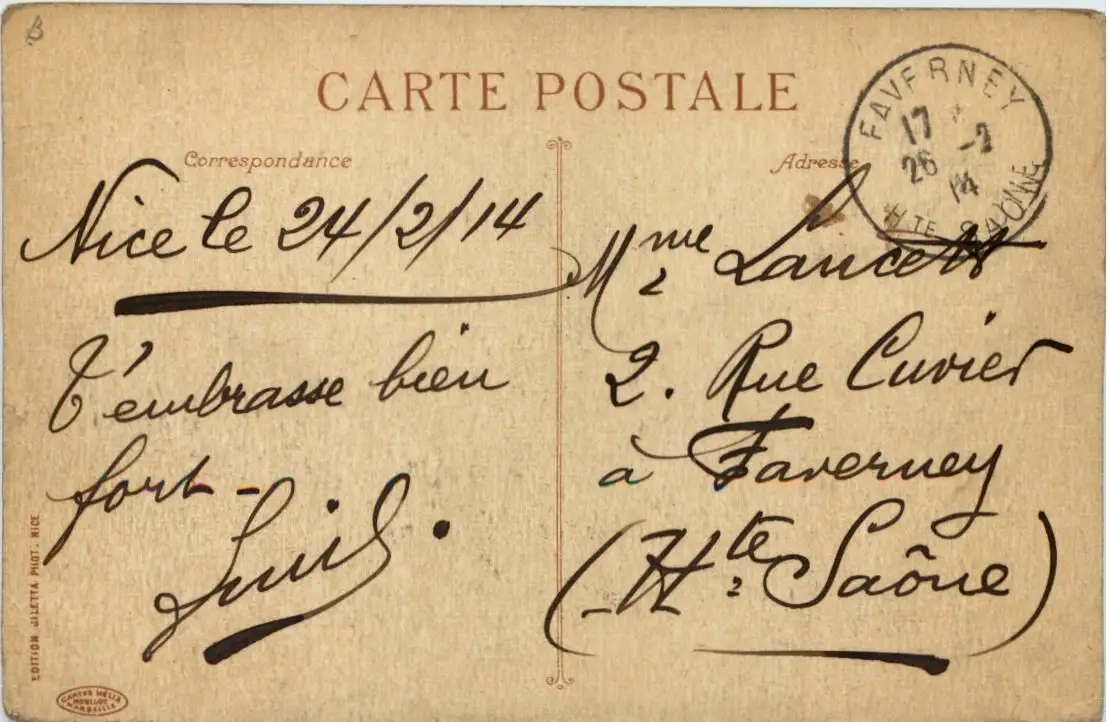 B
CARTE POSTALE
Correspondance
Adresse
FAVERNEY
17
26 -2
14
HTE SAÔNE
Nice le 24/2/14
T'embrasse bien
fort -
Mme
2. Rue Cuvier
à Faverney
(Hte Saône)
EDITION GILETTA PHOT. NICE
CARTES HELIA
MOULLOT
MARSEILLE